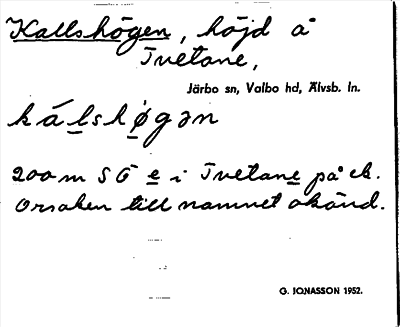 Kallshögen, höjd å
Tvetane,
Järbo sn, Valbo hd, Älvsb. ln.
kálshøgən
200 m SÖ e i Tvetane på ek.
Orsaken till namnet okänd.
G. JONASSON 1952.